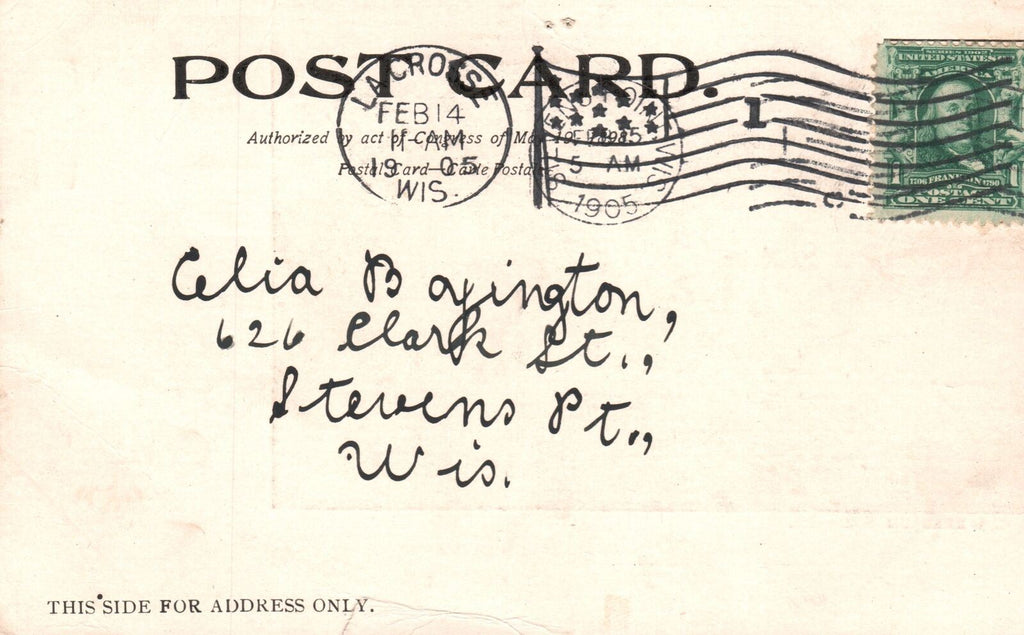 POST CARD.
Authorized by act of Congress of May 19, 1898.
Postal Card—Carte Postale
LA CROSSE
FEB 14
11-AM
19 05
WIS.
5 AM
1905
WIS
1
SERIES 1902
UNITED STATES
AMERICA
1706 FRANKLIN 1790
POSTAGE
1 ONE CENT 1
Celia Boyington,
626 Clark St.,
Stevens Pt.,
Wis.
THIS SIDE FOR ADDRESS ONLY.